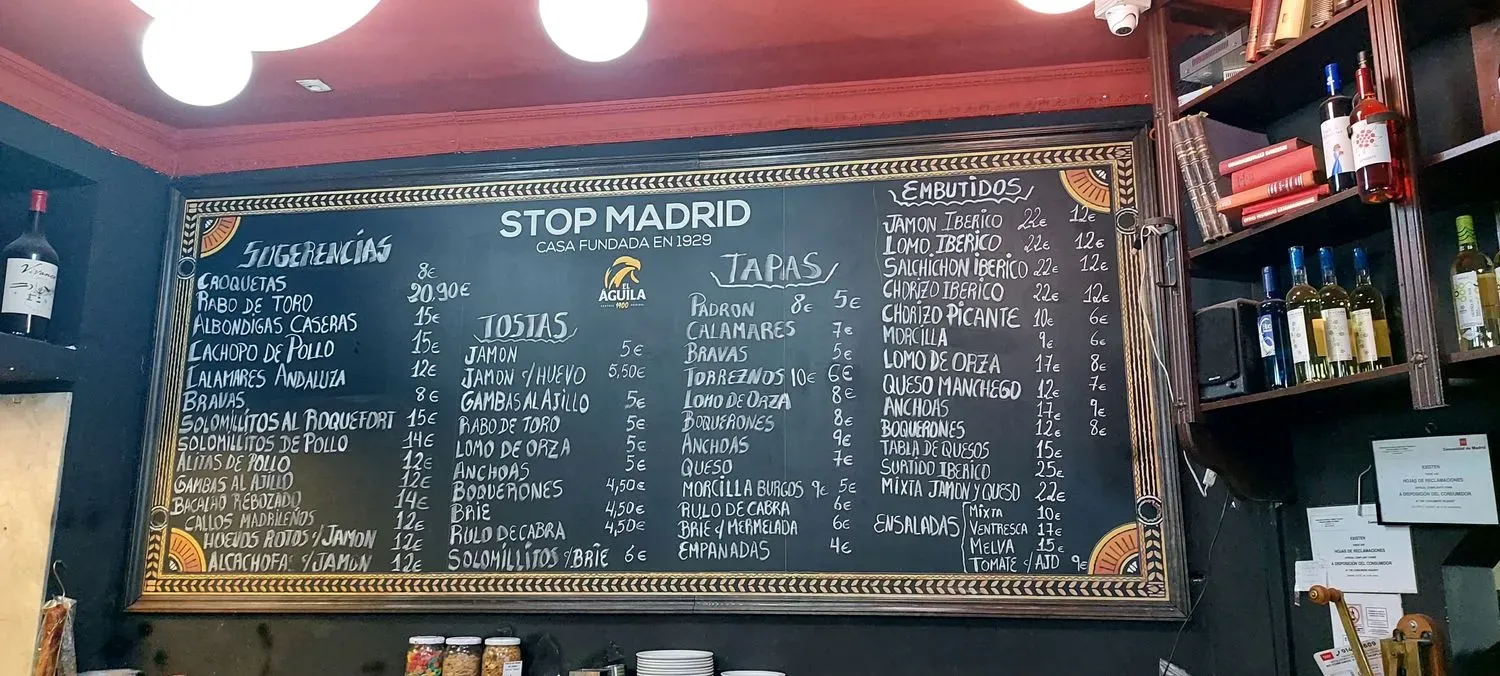 STOP MADRID
CASA FUNDADA EN 1929
EL
ÁGUILA
1900
SUGERENCIAS
CROQUETAS 8€
RABO DE TORO 20,90€
ALBONDIGAS CASERAS 15€
CACHOPO DE POLLO 15€
CALAMARES ANDALUZA 12€
BRAVAS 8€
SOLOMILLITOS AL ROQUEFORT 15€
SOLOMILLITOS DE POLLO 14€
ALITAS DE POLLO 12€
GAMBAS AL AJILLO 12€
BACALAO REBOZADO 14€
CALLOS MADRILEÑOS 12€
HUEVOS ROTOS c/JAMON 12€
ALCACHOFAS c/JAMON 12€
TOSTAS
JAMON 5€
JAMON c/HUEVO 5,50€
GAMBAS AL AJILLO 5€
RABO DE TORO 5€
LOMO DE ORZA 5€
ANCHOAS 5€
BOQUERONES 4,50€
BRIE 4,50€
RULO DE CABRA 4,50€
SOLOMILLITOS c/BRIE 6€
TAPAS
PADRON 8€ 5€
CALAMARES 7€
BRAVAS 5€
TORREZNOS 10€ 6€
LOMO DE ORZA 8€
BOQUERONES 8€
ANCHOAS 9€
QUESO 7€
MORCILLA BURGOS 9€ 5€
RULO DE CABRA 6€
BRIE c/MERMELADA 6€
EMPANADAS 4€
EMBUTIDOS
JAMON IBERICO 22€ 12€
LOMO IBERICO 22€ 12€
SALCHICHON IBERICO 22€ 12€
CHORIZO IBERICO 22€ 12€
CHORIZO PICANTE 10€ 6€
MORCILLA 9€ 6€
LOMO DE ORZA 17€ 8€
QUESO MANCHEGO 12€ 7€
ANCHOAS 17€ 9€
BOQUERONES 12€ 8€
TABLA DE QUESOS 15€
SURTIDO IBERICO 25€
MIXTA JAMON Y QUESO 22€
ENSALADAS
MIXTA 10€
VENTRESCA 17€
MELVA 15€
TOMATE c/AJO 9€
Comunidad de Madrid
EXISTEN
HOJAS DE RECLAMACIONES
A DISPOSICIÓN DEL CONSUMIDOR
EXISTEN
HOJAS DE RECLAMACIONES
A DISPOSICIÓN DEL CONSUMIDOR